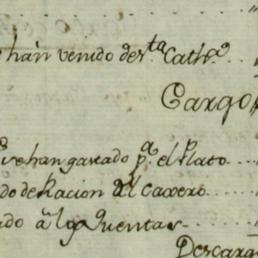 han venido de sta Cathª
Cargo
se han gastado pª el Plato
do de Racion al Caxero
ado à las Quentas
Descarg